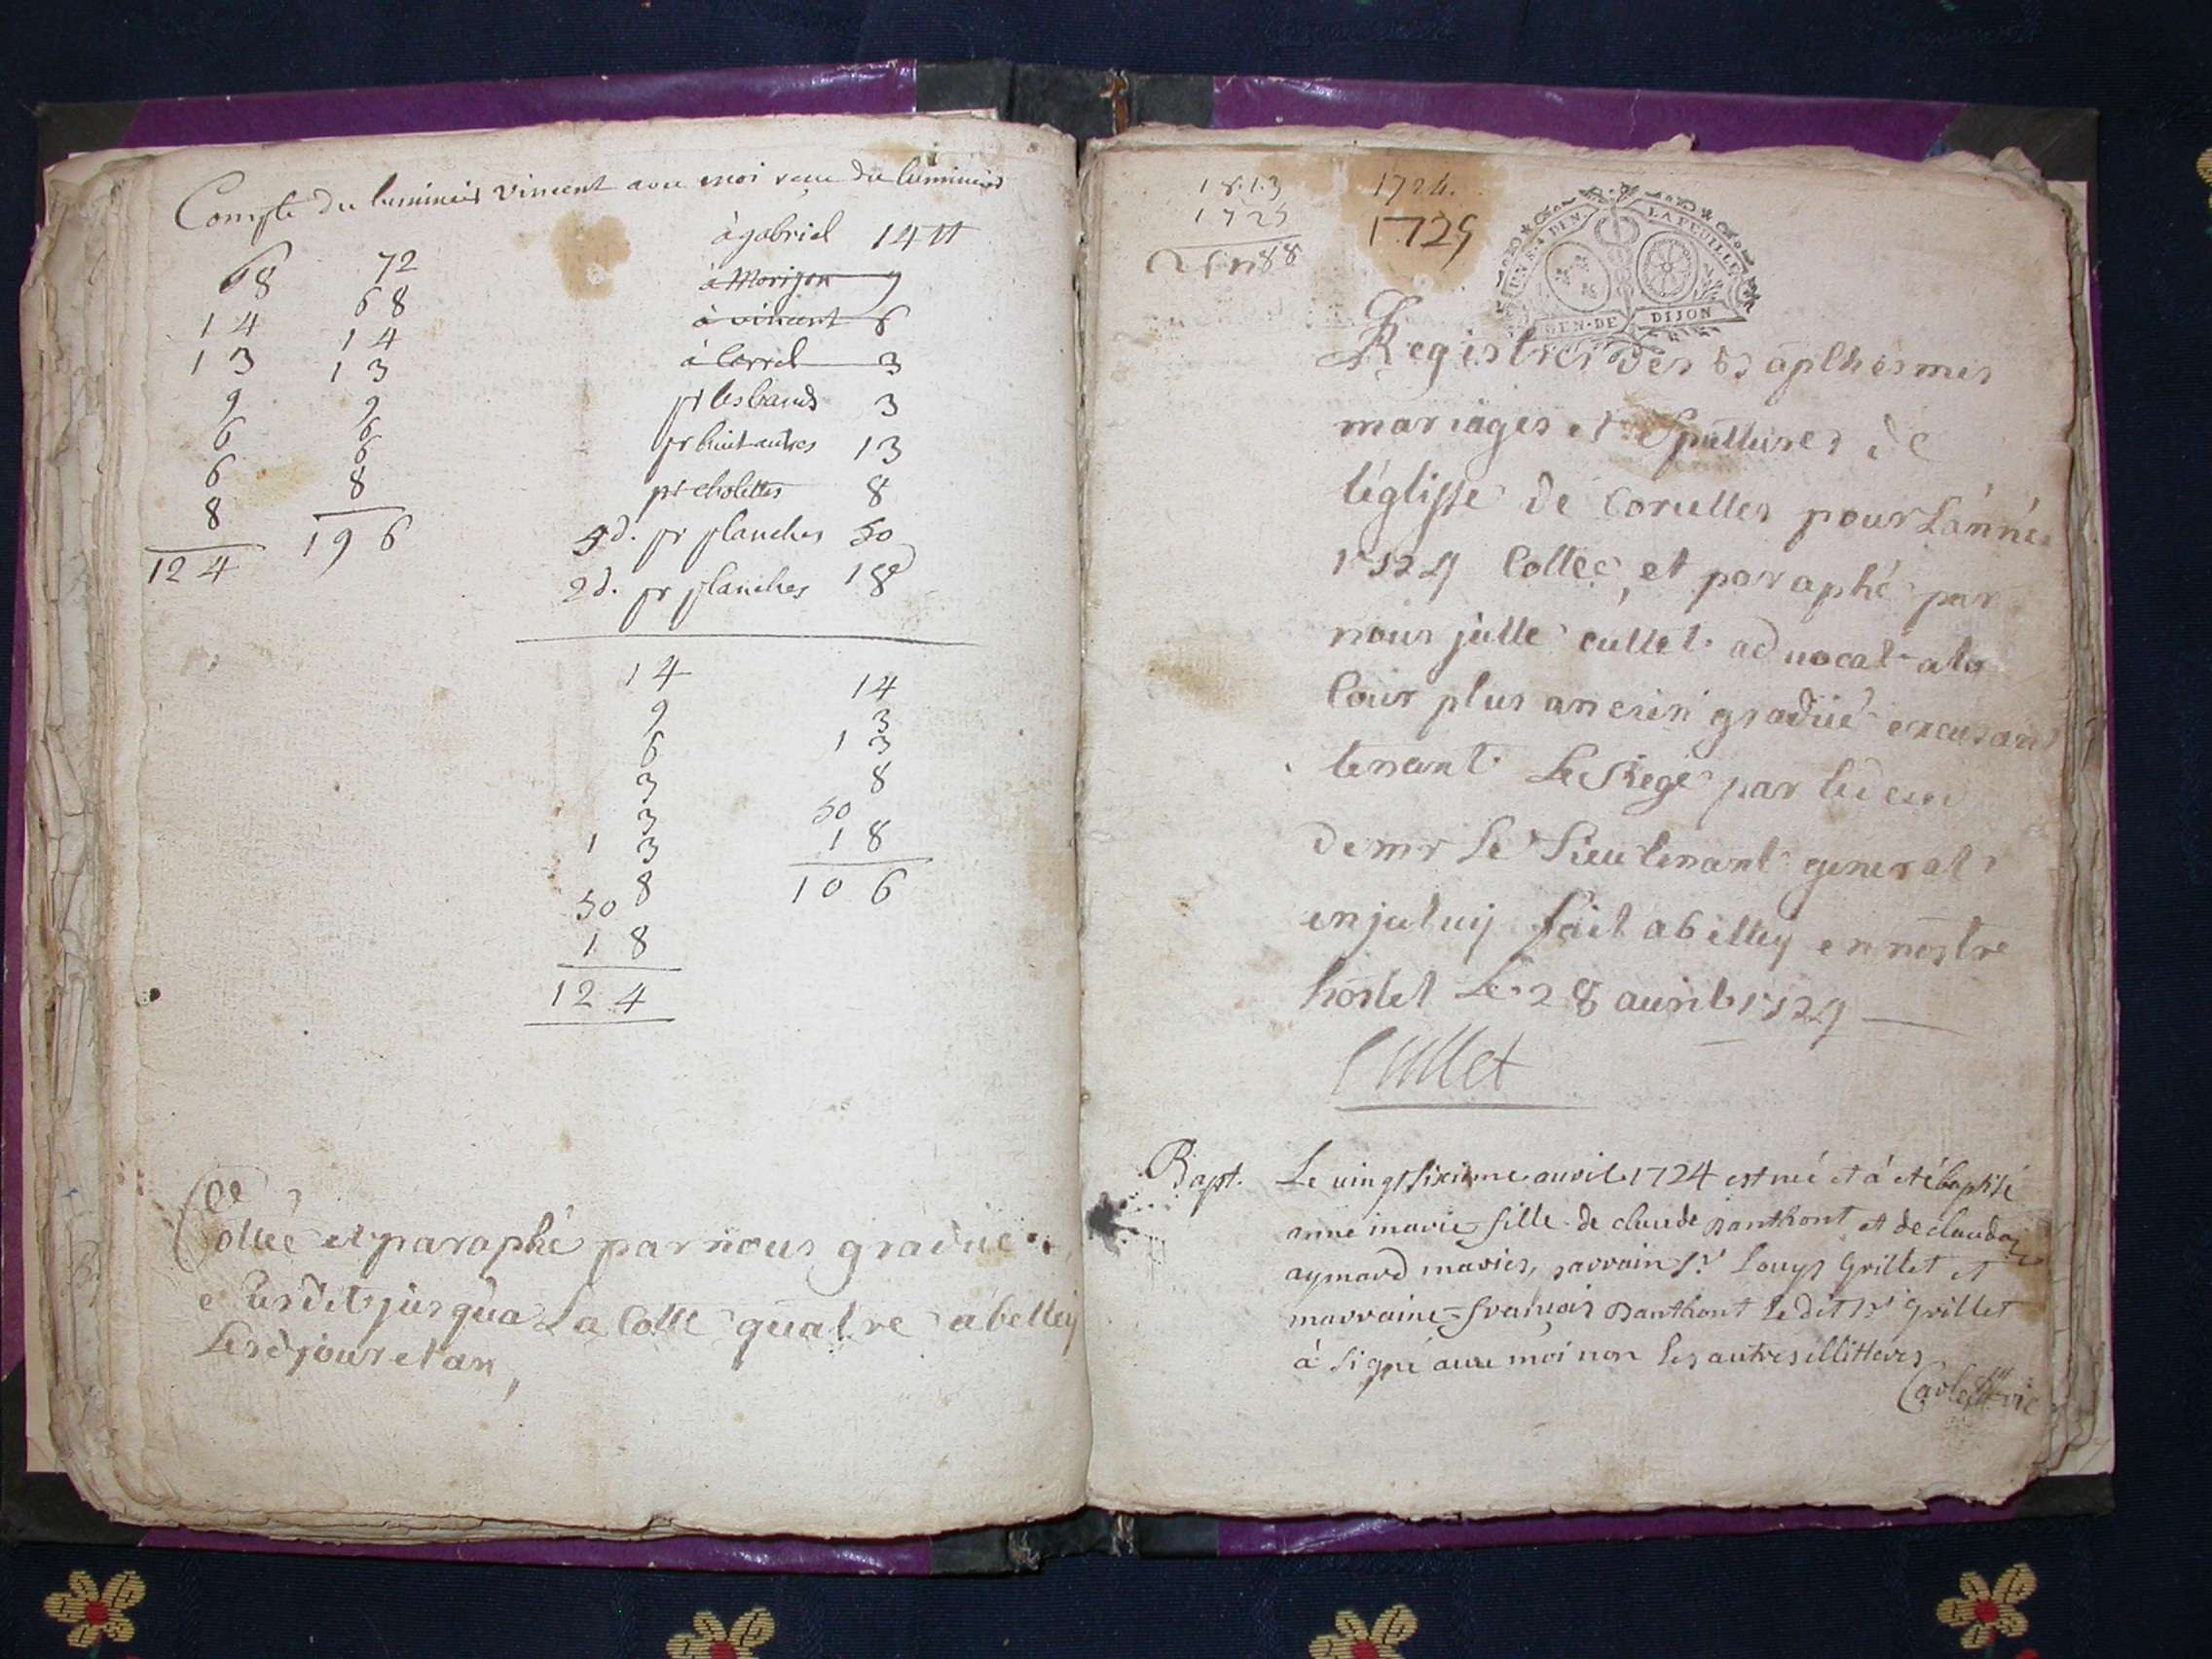 Compte du luminier vincent avec moi du luminier
68 72
14 68
13 14
9 13
6 9
6 6
8 6
124 8
196
à gabriel 14 tt
à Morizon 9
à vincent 6
à Carrel 3
pr les bancs 3
pr huit autres 13
pr cholettes 8
5 d. pr planches 50
2 d. pr planches 18
14 14
9 3
6 13
3 8
3 50
13 18
8 106
50
18
124
Cottée et paraphé par nous gradué
susdit jusqua La Cotte quatre a belley
Lesd jour et an,
1813 1724.
1725 1725
UN S. 4 DEN. LA FEUILLE
GEN. DE DIJON
Registres des bapthesmes
mariages et Sepultures de
léglisse de Corcelles pour Lánnée
1724 Cottéé, et paraphé par
nous jùlle cullet advocat ala
Cour plus ancien gradué excusant
tenant Le Siege par
de mr Le Lieutenant general
enjaluy fait a belley en nostre
hostel Le 28 auril 1724
Cullet
Bapt. Le uingt sixieme auril 1724 est né et à eté baptisé
anne marie fille de claude Banthont et de claudaz
aymard mariés, parrain Sr. Louys Grillet et
marraine françois Banthont le dit Sr Grillet
à signé auec moi non les autres illitterés